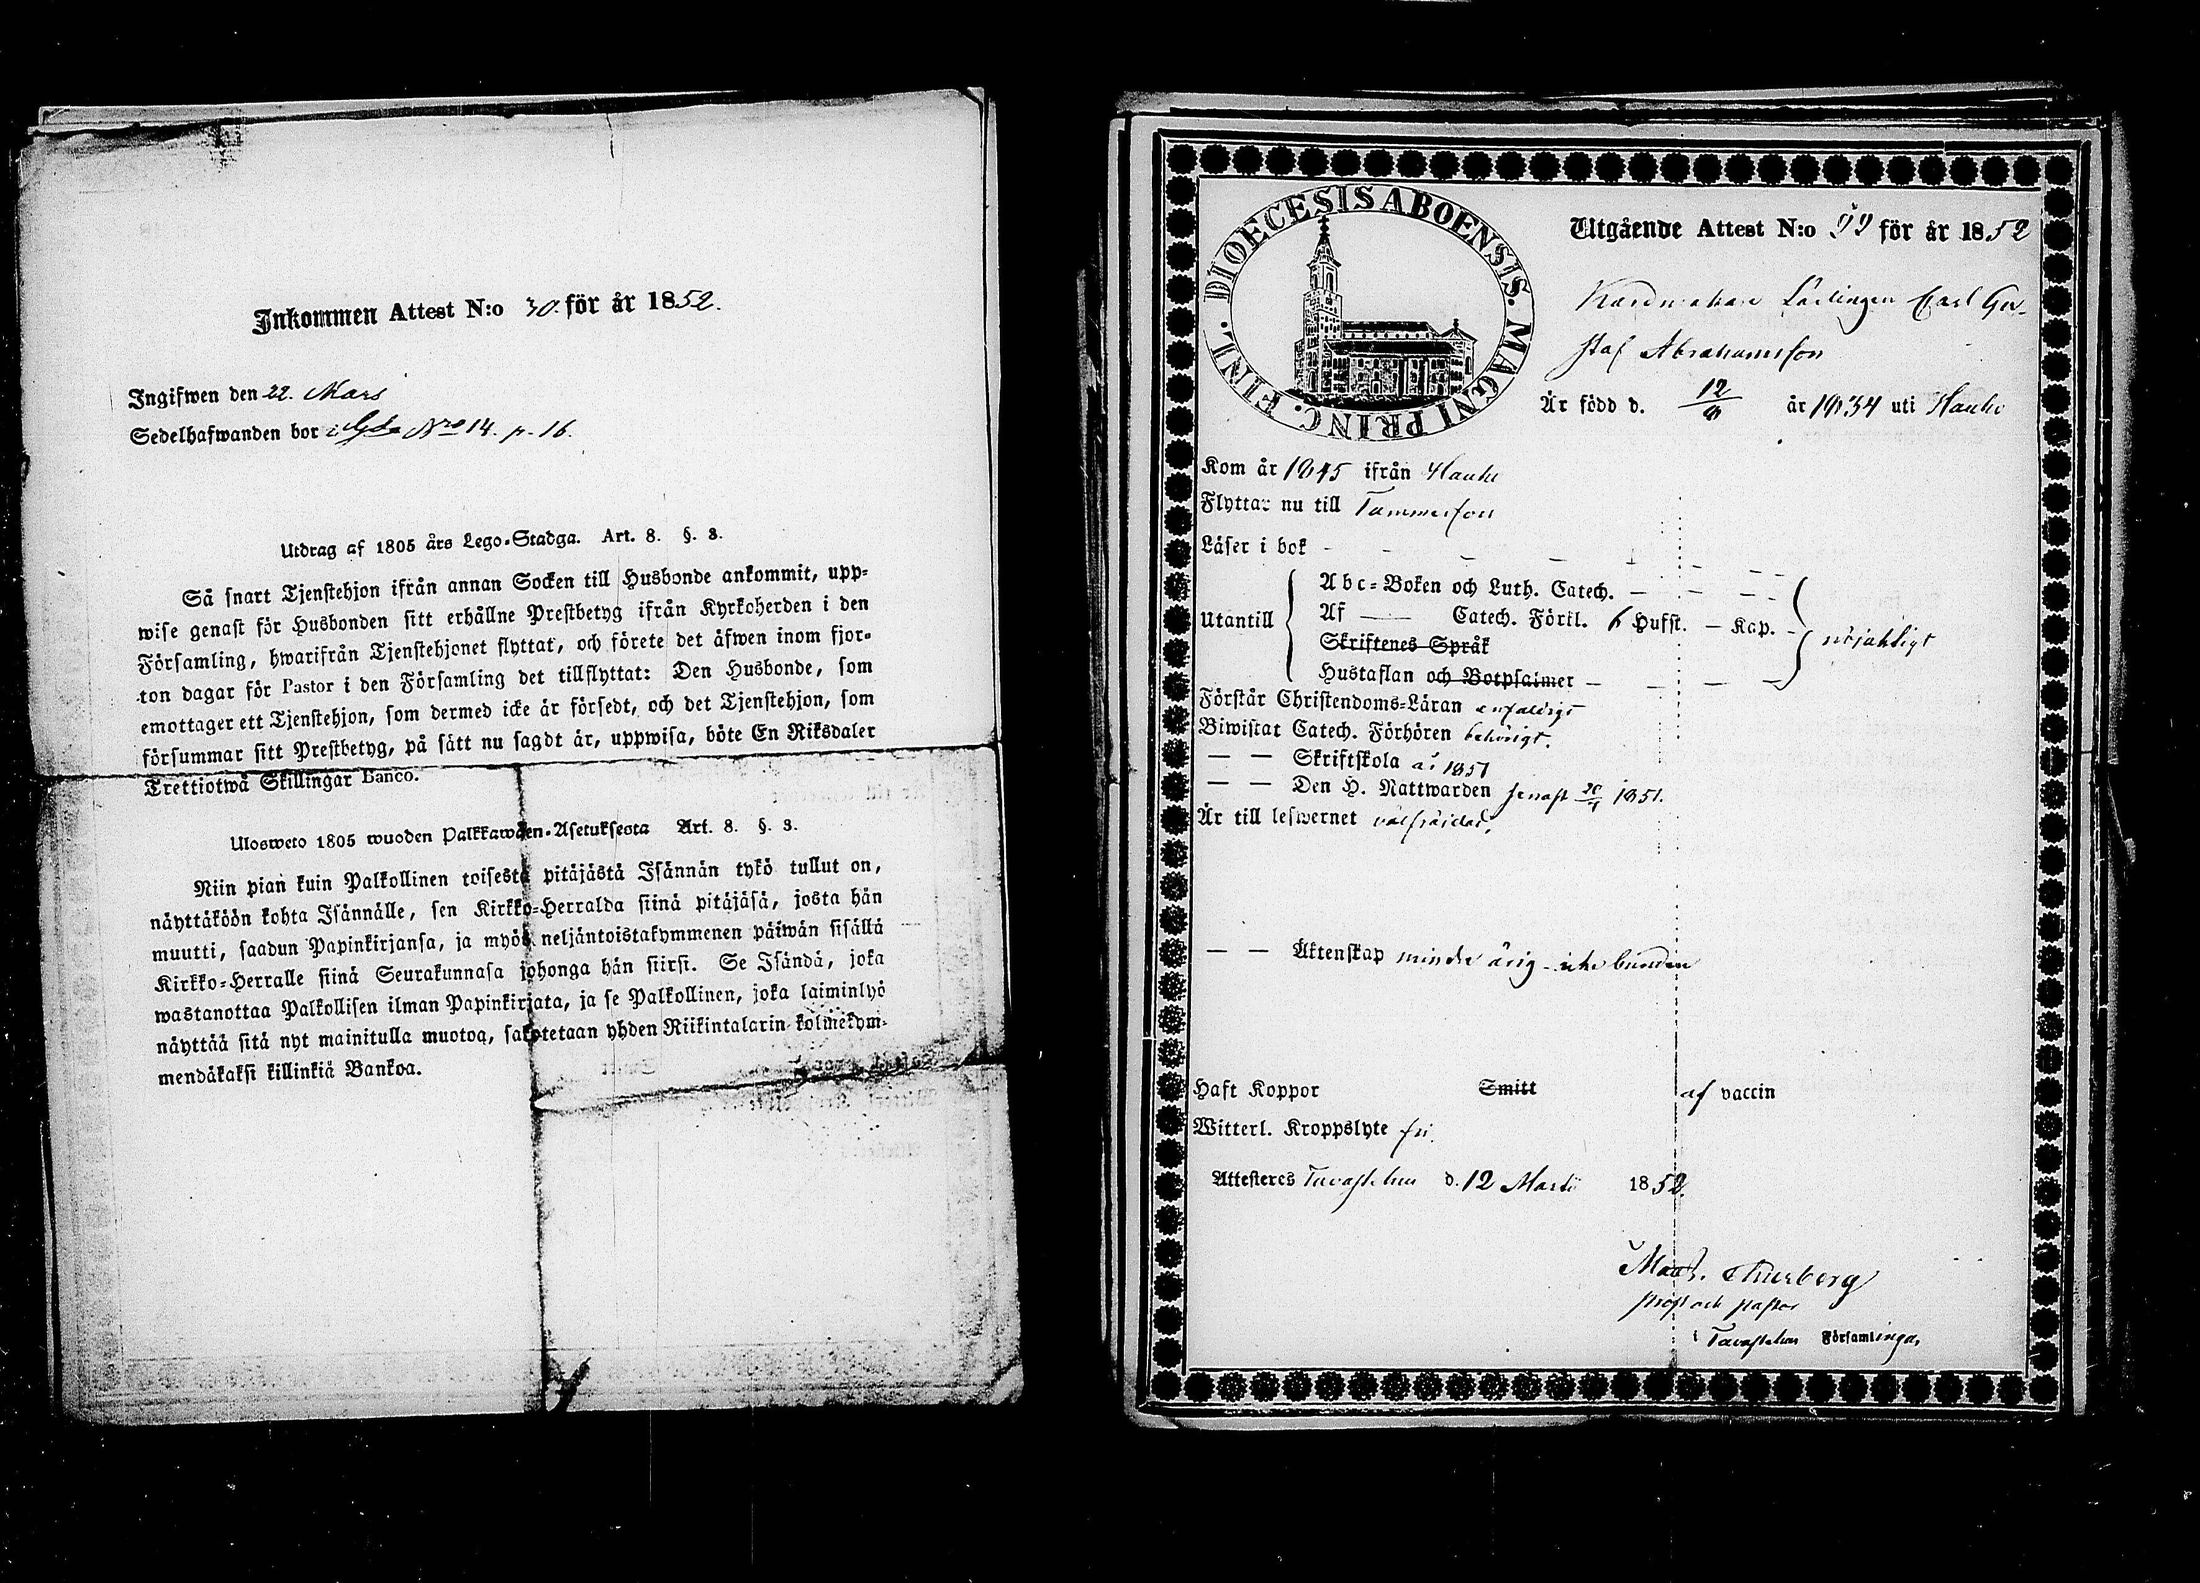 Inkommen Attest N:o 30. för år 1852.
Ingifwen den 22. Mars
Sedelhafwanden bor i Gda Nro 14. p. 16.
Utdrag af 1805 års Lego-Stadga. Art. 8. §. 3.
Så snart Tjenstehjon ifrån annan Socken till Husbonde ankommit, upp-
wise genast för Husbonden sitt erhållne Prestbetyg ifrån Kyrkoherden i den
Församling, hwarifrån Tjenstehjonet flyttat, och förete det äfwen inom fjor-
ton dagar för Pastor i den Församling det tillflyttat: Den Husbonde, som
emottager ett Tjenstehjon, som dermed icke är försedt, och det Tjenstehjon, som
försummar sitt Prestbetyg, på sätt nu sagdt är, uppwisa, böte En Riksdaler
Trettiotwå Skillingar Banco.
Ulosweto 1805 wuoden Palkkawäen-Asetuksesta Art. 8. §. 3.
Niin pian kuin Palkollinen toisesta pitäjästä Isännän tykö tullut on,
näyttäköön kohta Isännälle, sen Kirkko-Herralda siinä pitäjäsä, josta hän
muutti, saadun Papinkirjansa, ja myös neljäntoistakymmenen päiwän sisällä
Kirkko-Herralle siinä Seurakunnasa johonga hän siirsi. Se Isändä, joka
wastanottaa Palkollisen ilman Papinkirjata, ja se Palkollinen, joka laiminlyö
näyttää sitä nyt mainitulla muotoa, sakotetaan yhden Riikintalarin kolmekym-
mendäkaksi killinkiä Bankoa.
DIOECESIS ABOENSIS. MAGNI PRINC. FINL.
Utgående Attest N:o 99 för år 1852
Kardmakare Lärlingen Carl Gu-
staf Abrahamsson
Är född d. 12/9 år 1834 uti Hauho
Kom år 1845 ifrån Hauho
Flyttar nu till Tammerfors
Läser i bok - - - - - -
Utantill
Abc-Boken och Luth. Catech. - - - -
Af — Catech. Förkl. 6 Hufst. - Kap. -
Skriftenes Språk
Hustaflan och Botpsalmer - - - -
nöjaktigt
Förstår Christendoms-Läran enfaldigt
Biwistat Catech. Förhören behörigt.
— — Skriftskola år 1851
— — Den H. Nattwarden senast 1851.
Är till lefwernet välfräjdad,
— — Äktenskap minderårig - icke bunden
Haft Koppor Smitt af vaccin
Witterl. Kroppslyte fri.
Attesteres Tavastehus d. 12 Martii 1852.
Thurberg
prost och pastor
i Tavastehus Församlingar,